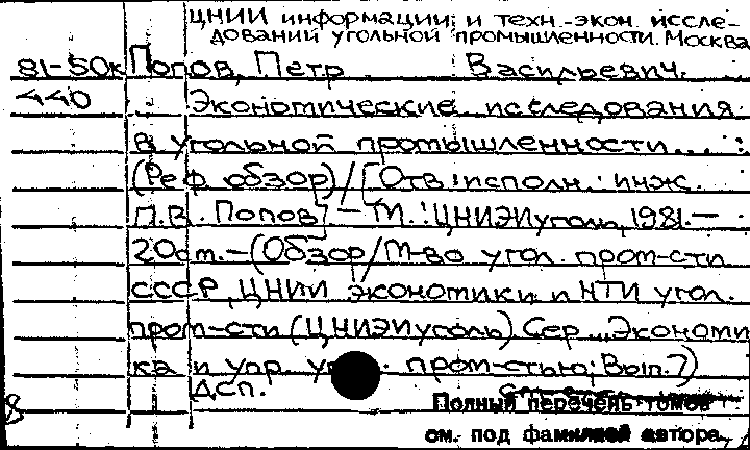 ЦНИИ информации и техн.-экон. иссле-
дований угольной промышленности. Москва
81-50к Попов, Петр Васильевич.
440 Экономические исследования
в угольной промышленности... :
(Реф. обзор)/[Отв. исполн.: инж.
П.В. Попов] – М.: ЦНИЭИуголь, 1981.–
20см.–(Обзор/М-во угол. пром-сти
СССР, ЦНИИ экономики и НТИ угол.
пром-сти (ЦНИЭИуголь) Сер. „Экономи
ка и упр. пром-стью; Вып. 7)
ДСП.
8 Полный перечень томов
см. под фамилией автора